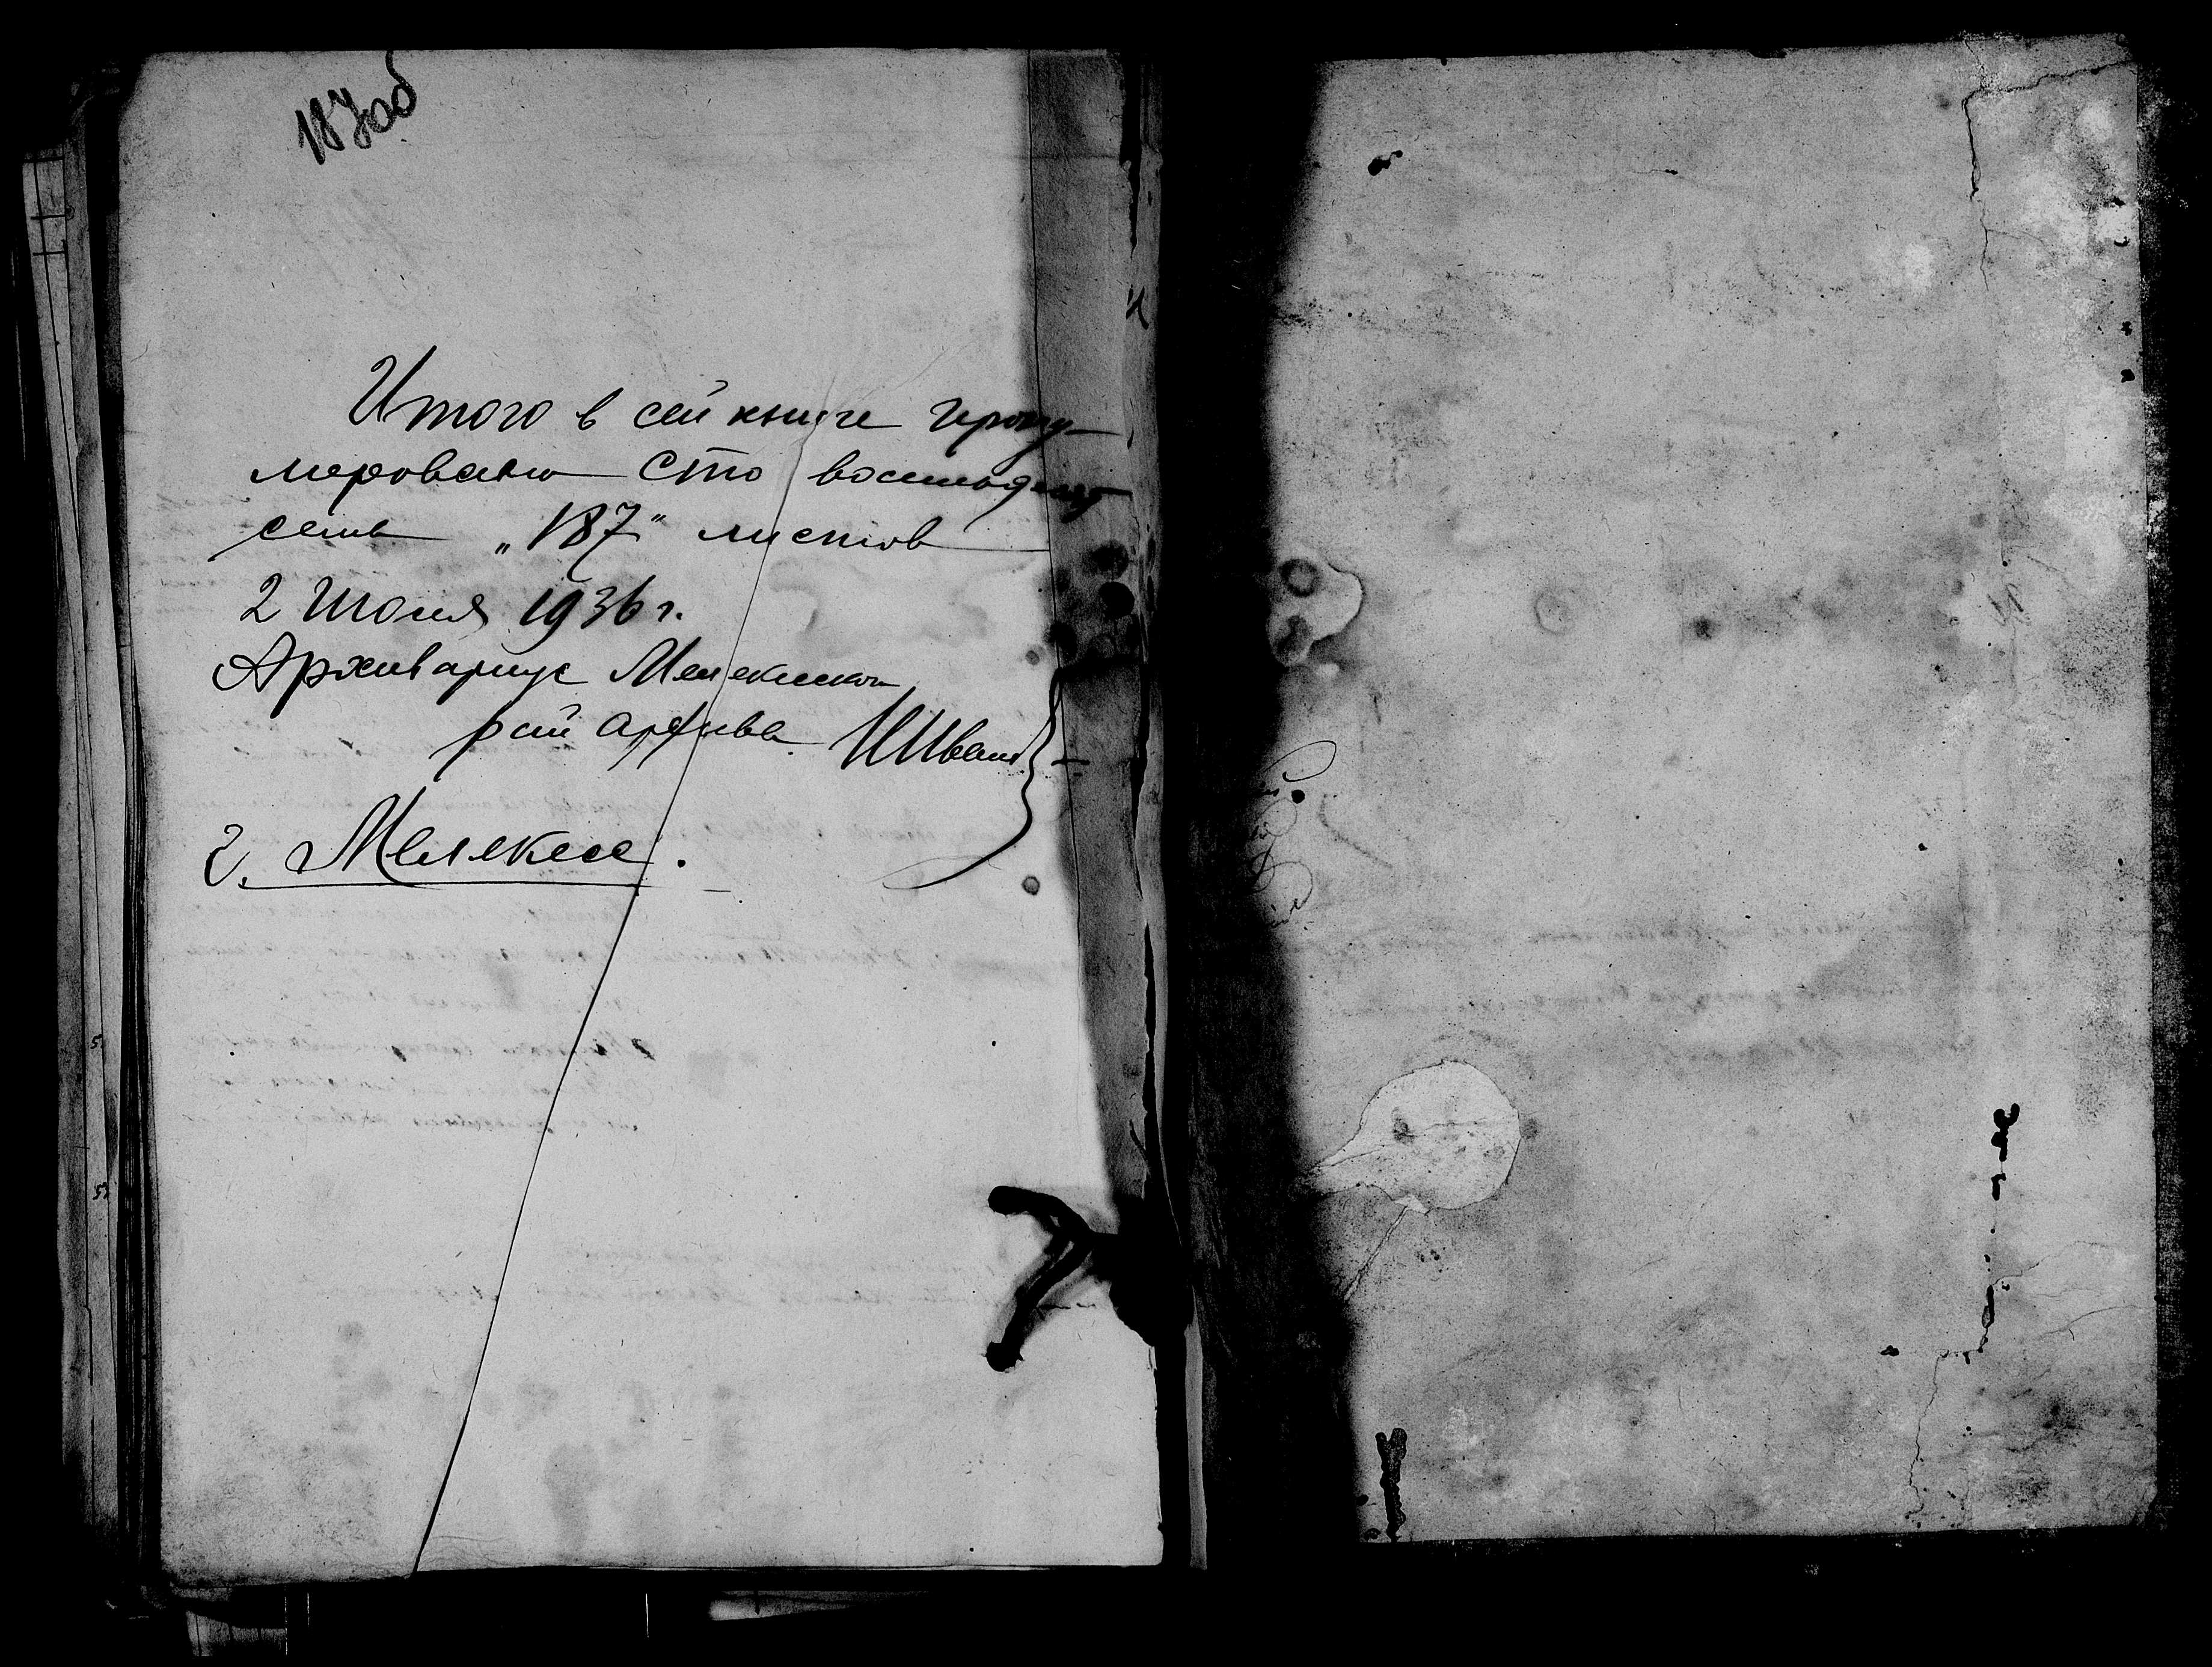 187об
Итого в сей книге прону-
меровано сто восемьдесят
семь „187" листов
2 июня 1936 г.
Архивариус Мелекесского
рай архива ИИванов
г. Мелекесс.